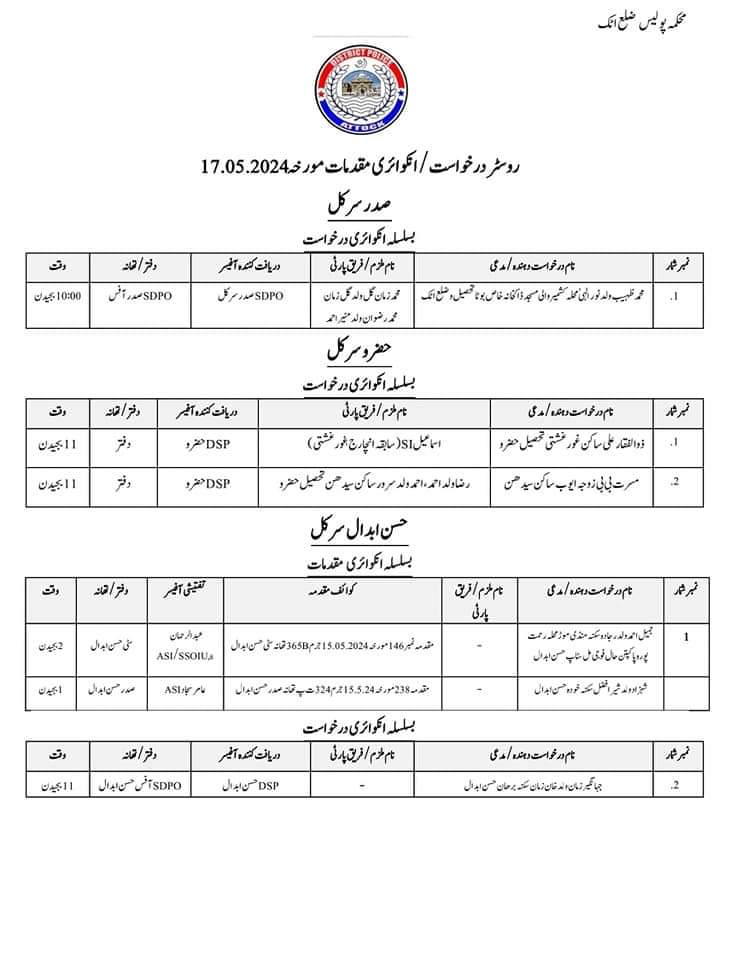 محکمہ پولیس ضلع اٹک
DISTRICT POLICE
ATTOCK
روسٹر درخواست / انکوائری مقدمات مورخہ 17.05.2024
صدر سرکل
بسلسلہ انکوائری درخواست
نمبر شمار نام درخواست دہندہ / مدعی نام ملزم / فریق پارٹی دریافت کنندہ آفیسر دفتر / تھانہ وقت
1. محمد ظہیب ولد نور الٰہی محلہ کشمیر والی مسجد ڈاکخانہ خاص بوٹا تحصیل و ضلع اٹک محمد زمان گل ولد گل زمان SDPO صدر سرکل SDPO صدر آفس 10:00 بجیدن
محمد رضوان ولد منیر احمد
حضرو سرکل
بسلسلہ انکوائری درخواست
نمبر شمار نام درخواست دہندہ / مدعی نام ملزم / فریق پارٹی دریافت کنندہ آفیسر دفتر / تھانہ وقت
1. ذوالفقار علی ساکن غورغشتی تحصیل حضرو اسماعیل SI (سابقہ انچارج غورغشتی) DSP حضرو دفتر 11 بجیدن
2. مسرت بی بی زوجہ ایوب ساکن سیدھن رضا ولد احمد، احمد ولد سرور ساکن سیدھن تحصیل حضرو DSP حضرو دفتر 11 بجیدن
حسن ابدال سرکل
بسلسلہ انکوائری مقدمات
نمبر شمار نام درخواست دہندہ / مدعی نام ملزم / فریق کوائف مقدمہ تفتیشی آفیسر دفتر / تھانہ وقت
پارٹی
1 جمیل احمد ولد رجادو سکنہ منڈی موڑ محلہ رحمت - مقدمہ نمبر 146 مورخہ 15.05.2024 جرم 365B تھانہ سٹی حسن ابدال عبدالرحمان سٹی حسن ابدال 2 بجیدن
پورہ پاکپتن حال فوجی مل سٹاپ حسن ابدال ASI/SSOIU
شہزاد ولد شیر افضل سکنہ خودہ حسن ابدال - مقدمہ 238 مورخہ 15.5.24 جرم 324 ت پ تھانہ صدر حسن ابدال عامر سجاد ASI صدر حسن ابدال 1 بجیدن
بسلسلہ انکوائری درخواست
نمبر شمار نام درخواست دہندہ / مدعی نام ملزم / فریق پارٹی دریافت کنندہ آفیسر دفتر / تھانہ وقت
2. جہانگیر زمان ولد خان زمان سکنہ برھان حسن ابدال - DSP حسن ابدال SDPO آفس حسن ابدال 11 بجیدن